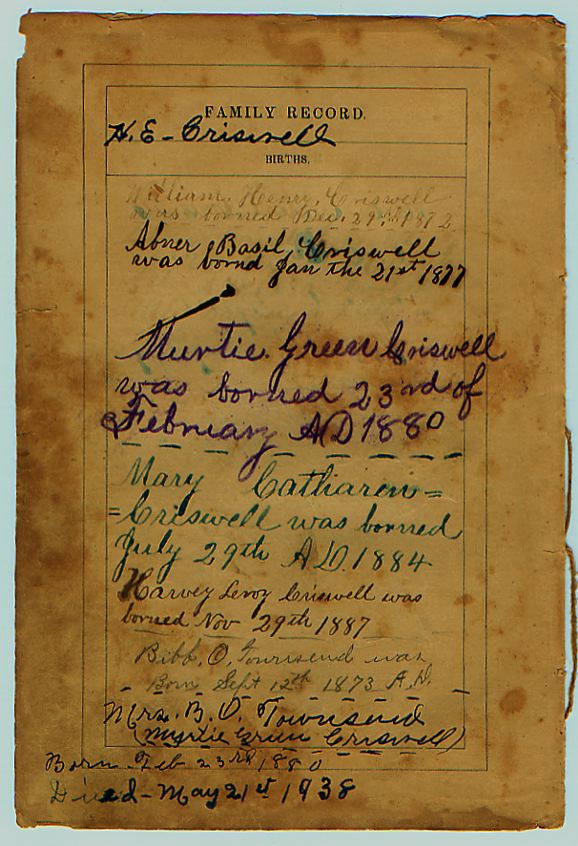 FAMILY RECORD.
H. E - Criswell
BIRTHS.
William, Henry, Criswell
was borned Dec. 29th 1872
Abner Basil, Criswell
was bornd Jan the 21st 1877
Murtie. Green Criswell
was borned 23rd of
February AD 1880
Mary Catharen=
=Criswell was borned
July 29th A.D. 1884
Harvey Leroy Criswell was
borned Nov 29th 1887
Bibb. O. Townsend was
Born Sept 12th 1873 A.D.
Mrs. B. O. Townsend
(Myrtie Green Criswell)
Born Feb 23rd, 1880
Died - May 21st 1938